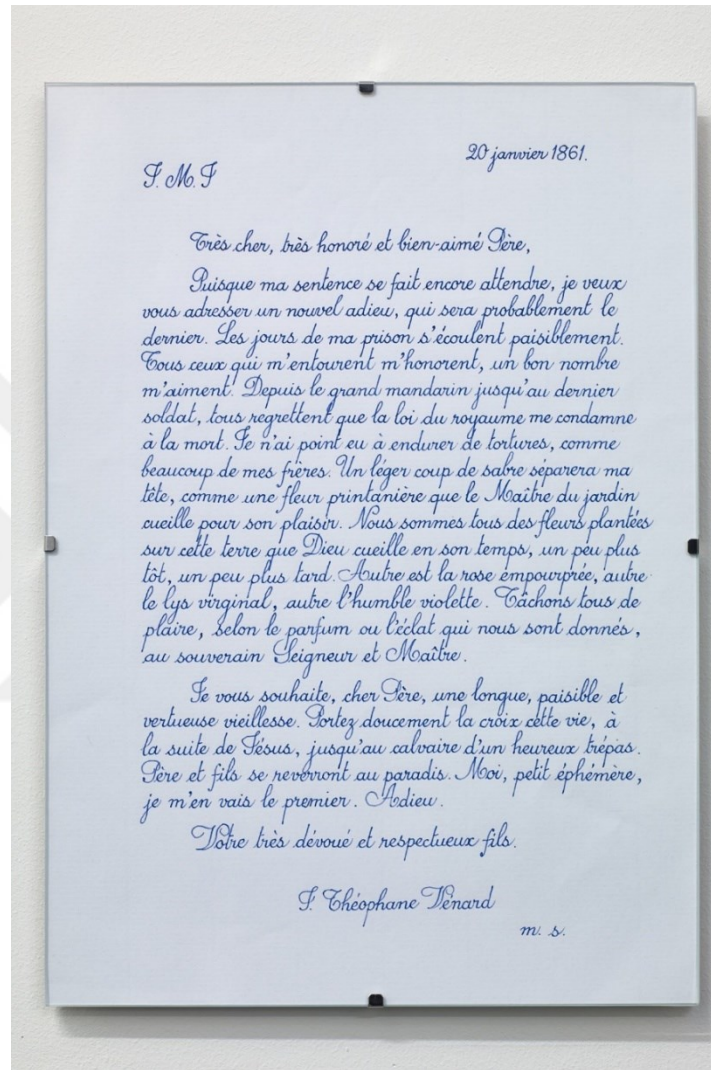 20 janvier 1861.
J. M. J
Très cher, très honoré et bien-aimé Père,
Puisque ma sentence se fait encore attendre, je veux
vous adresser un nouvel adieu, qui sera probablement le
dernier. Les jours de ma prison s'écoulent paisiblement.
Tous ceux qui m'entourent m'honorent, un bon nombre
m'aiment. Depuis le grand mandarin jusqu'au dernier
soldat, tous regrettent que la loi du royaume me condamne
à la mort. Je n'ai point eu à endurer de tortures, comme
beaucoup de mes frères. Un léger coup de sabre séparera ma
tête, comme une fleur printanière que le Maître du jardin
cueille pour son plaisir. Nous sommes tous des fleurs plantées
sur cette terre que Dieu cueille en son temps, un peu plus
tôt, un peu plus tard. Autre est la rose empourprée, autre
le lys virginal, autre l'humble violette. Tâchons tous de
plaire, selon le parfum ou l'éclat qui nous sont donnés,
au souverain Seigneur et Maître.
Je vous souhaite, cher Père, une longue, paisible et
vertueuse vieillesse. Portez doucement la croix cette vie, à
la suite de Jésus, jusqu'au calvaire d'un heureux trépas.
Père et fils se reverront au paradis. Moi, petit éphémère,
je m'en vais le premier. Adieu.
Votre très dévoué et respectueux fils.
J. Théophane Vénard
m. s.